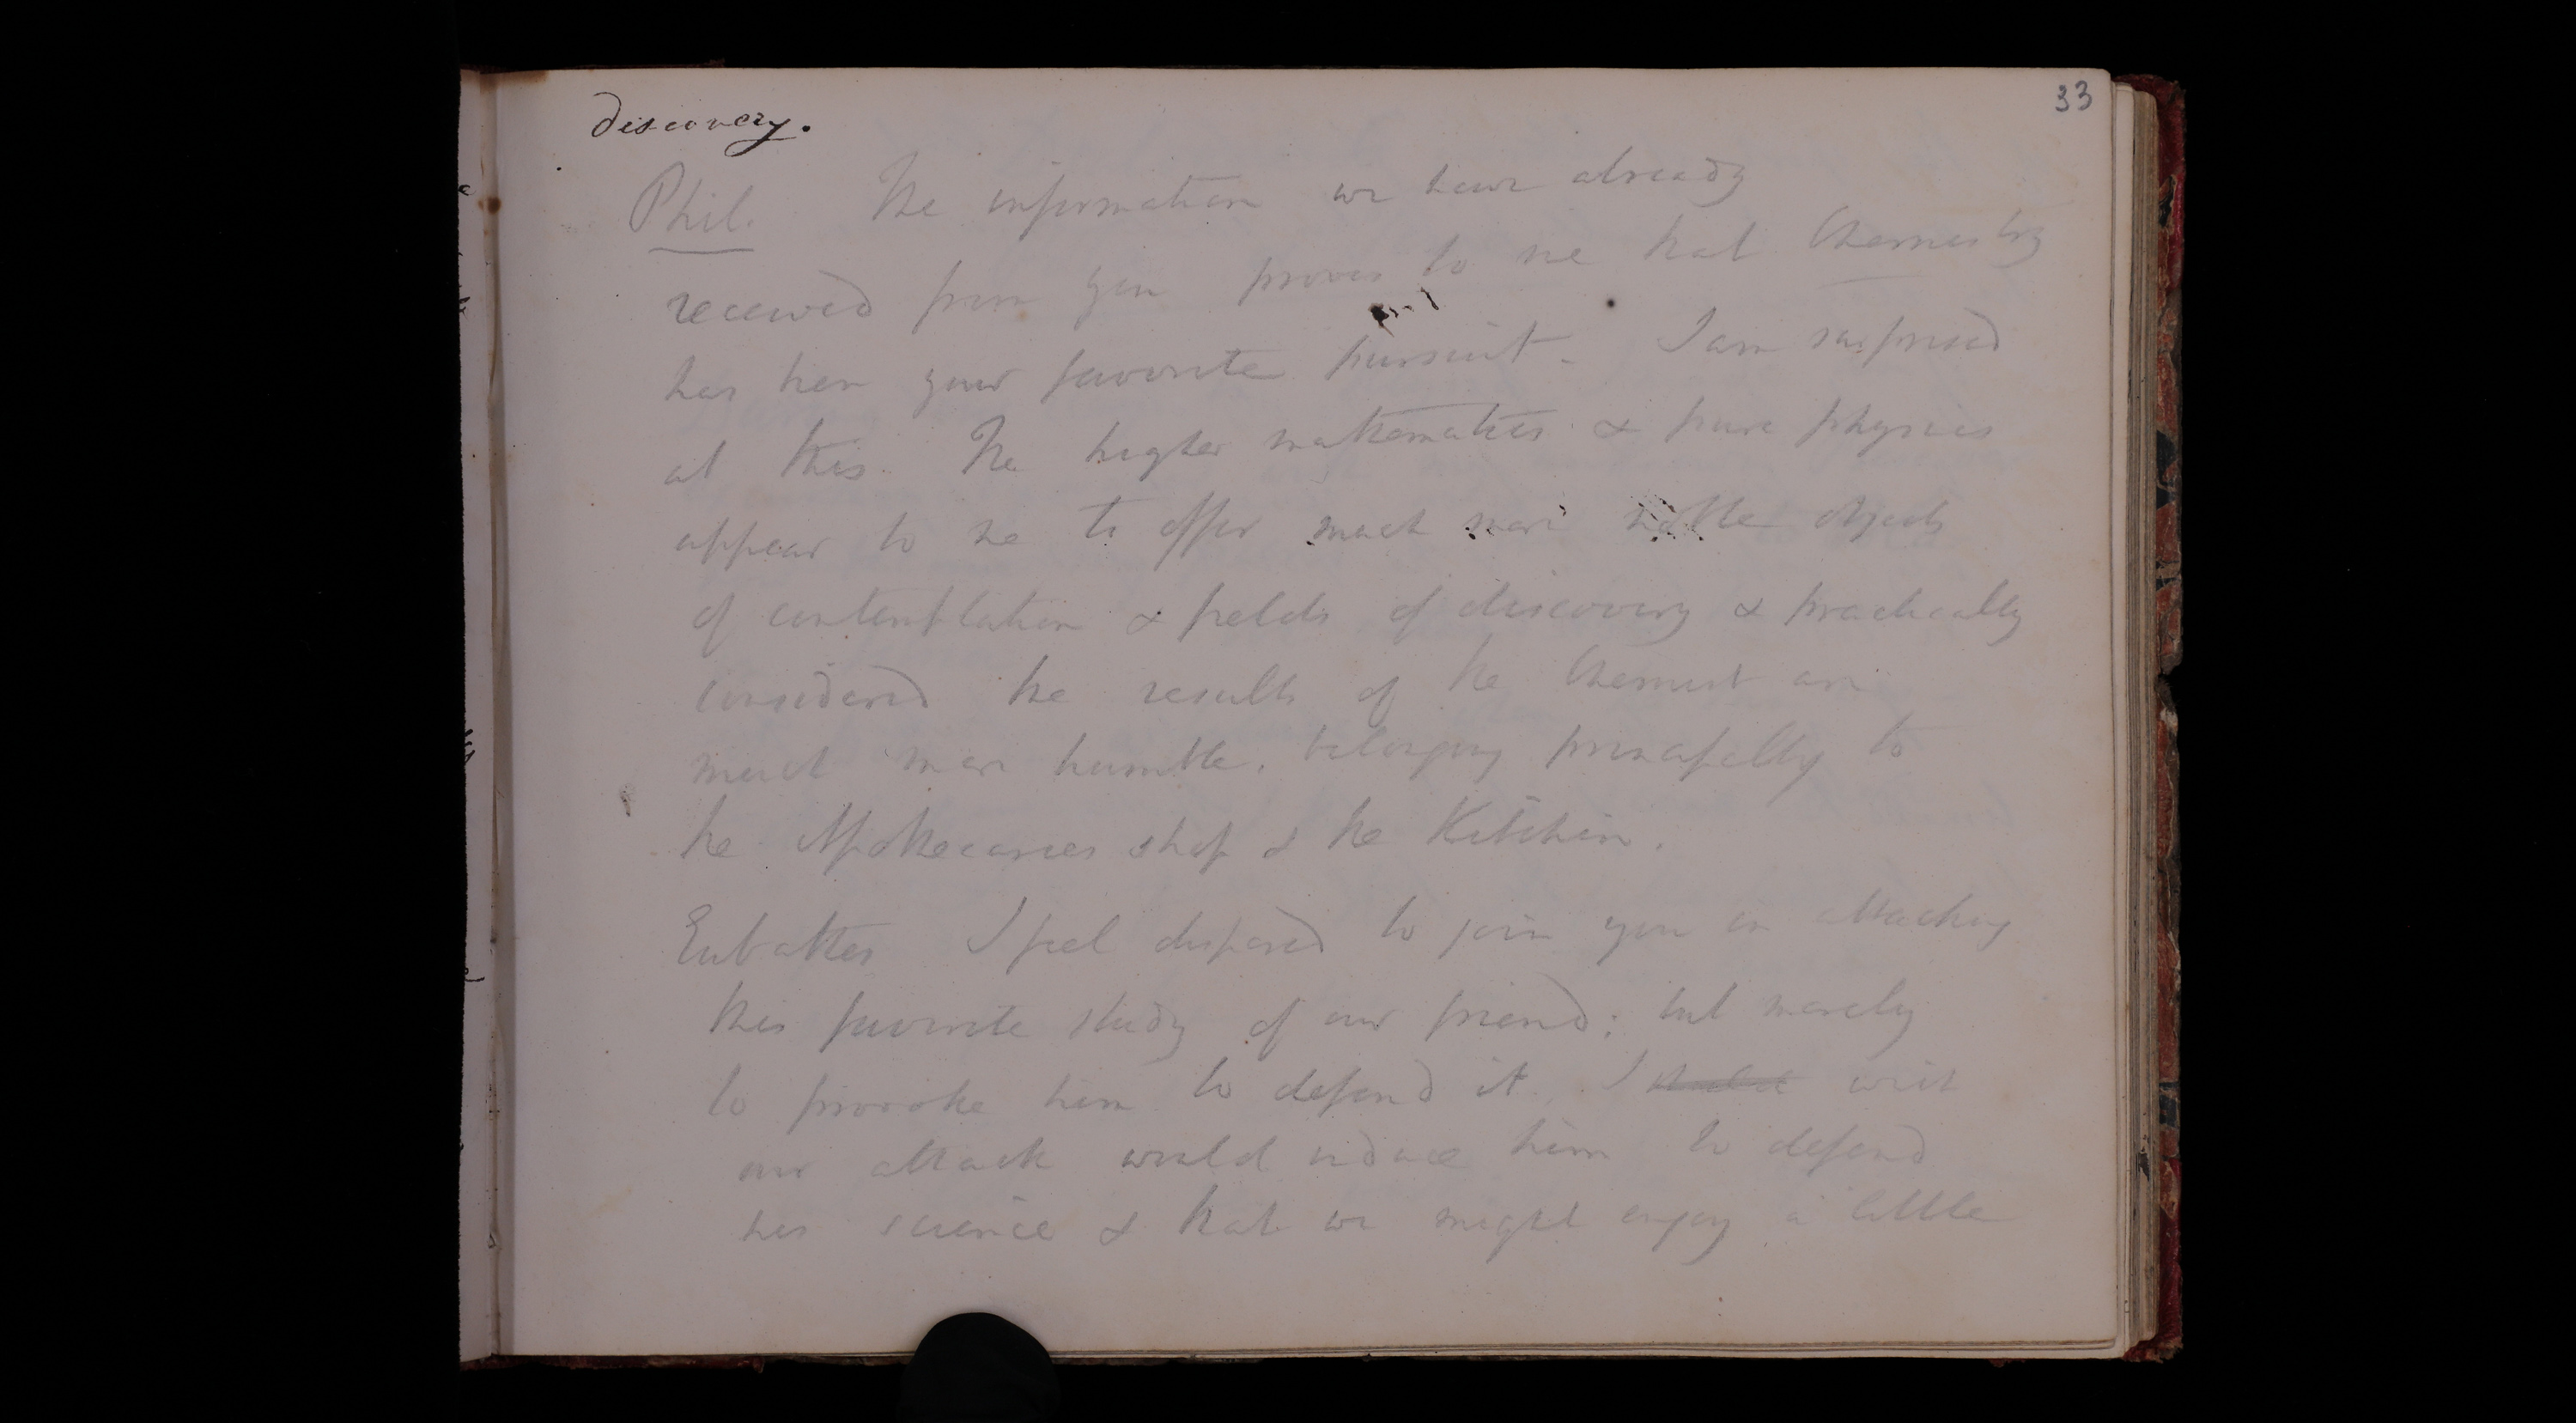 33
discovery.
Phil. The information we have already
received from you proves to me that Chemistry
has been your favorite pursuit - I am surprised
at this. The higher mathematics & pure physics
appear to me to offer much more noble objects
of contemplation & fields of discovery & practically
considered the results of the Chemist are
much more humble, belonging principally to
the Apothecaries shop & the Kitchen.
Eubathes I feel disposed to join you in attacking
this favorite study of our friend; but merely
to provoke him to defend it, I wish
our attack would induce him to defend
his science & that we might enjoy a little